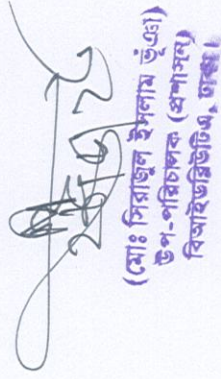 (মোঃ সিরাজুল ইসলাম ভুঁঞা)
উপ-পরিচালক (প্রশাসন)
বিআইডব্লিউটিএ, ঢাকা।